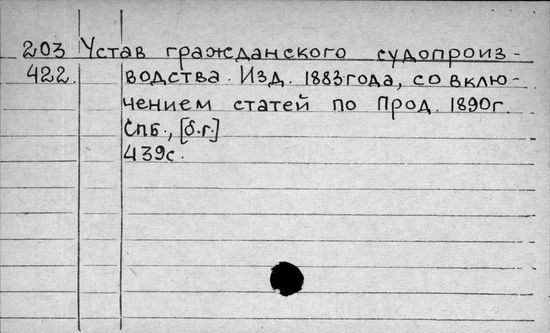 203 Устав гражданского судопроиз-
422. водства. Изд. 1883 года, со вклю-
чением статей по Прод. 1890 г.
Спб., [б.г.]
439 с.